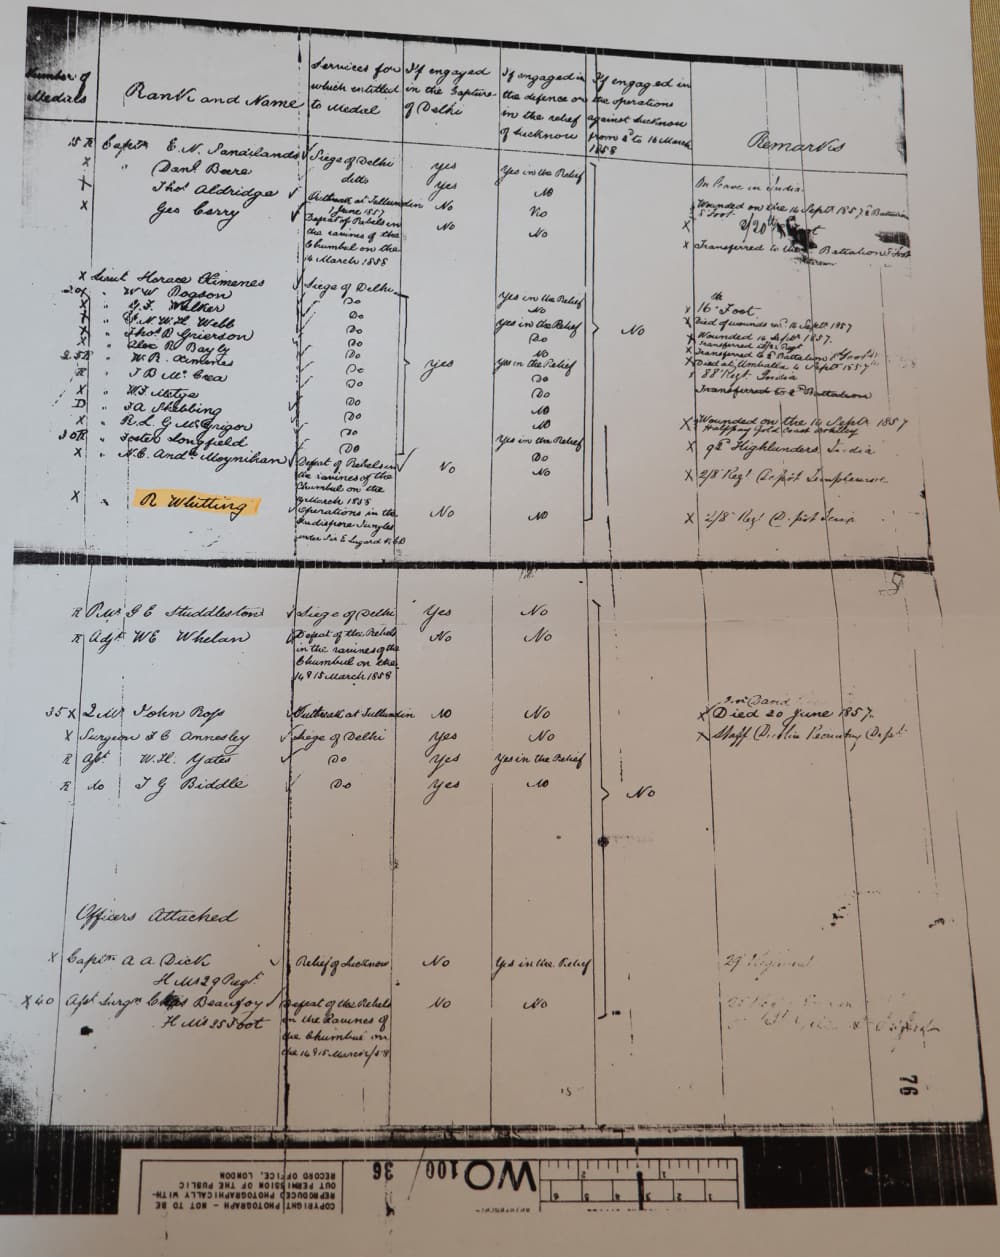 Number of Medals
Rank and Name
Services for which entitled to Medal
If engaged in the Capture of Delhi
If engaged in the defence or in the relief of Lucknow
If engaged in the operations against Lucknow from 2d to 16 March 1858
Remarks
15 R Captn E. N. Sandilands Siege of Delhi Yes Yes in the Relief
X " Danl Beere ditto Yes No On leave in India
X Thos Aldridge Outbreak at Jullundur June 1857 No No Wounded on the 14 Septr 1857 2 Battalion 8 Foot
X Geo Corry Defeat of Rebels in the ravines of the Chumbul on the 14 March 1858 No No X Transferred to the Battalion 8 Foot
2/20th Foot
X Lieut Horace Ximenes Siege of Delhi
20X " W W Pogson Do Yes in the Relief
X " Walker Do No X 16th Foot
X " W. H. Webb Do Yes in the Relief X Died of wounds 14 Septr 1857
X " Thos D Grierson Do Do X Wounded 14 Septr 1857
X " Alex R Bayly Do No X Transferred 2 Battalion 8 Foot
25R " W. R. Ximenes Do Yes Yes in the Relief No X Died at Umballa 4 Septr 1857
R " J B McCrea Do Do 88 Regt India
X " W. F. Metge Do Do Transferred to 2d Battalion
D " J A Stebbing Do No
X " R. L. G McGrigor Do No X Wounded on the 14 Septr 1857
Halfpay Gold Coast Artillery
30R " Foster Longfield Do Yes in the Relief
X " N. C. Andw Moynihan Defeat of Rebels in the ravines of the Chumbul on the March 1858 No No X 2/8 Regt Depôt Templemore
Do X 92d Highlanders India
X " R Whitting Operations in the Judispore Jungles under Sir E Lugard K.C.B No No X 2/8 Regt Depôt Temp
R P.Mr G E Huddleston Siege of Delhi Yes No
R Adjt W E Whelan Defeat of the Rebels in the ravines of the Chumbul on the 14 & 15 March 1858 No No
35X 2 Mr John Ross Outbreak at Jullundur No No X Died 20 June 1857.
X Surgeon J E Annesley Siege of Delhi Yes No X Staff Dublin Recruiting Dept
R Asst W. H. Yates Do Yes Yes in the Relief
R do J G Biddle Do Yes No No
Officers Attached
X Captn A A Dick Relief of Lucknow No Yes in the Relief 29 Regiment
H Ms 29 Regt
X40 Asst Surgn Beaufoy Defeat of the Rebels in the Ravines of the Chumbul on the 14 & 15 March/58 No No
H Ms 35 Foot
76
COPYRIGHT PHOTOGRAPH - NOT TO BE
REPRODUCED PHOTOGRAPHICALLY WITH-
OUT PERMISSION OF THE PUBLIC
RECORD OFFICE, LONDON
WO 100/ 36
1 2
1 2 3 4 5 6